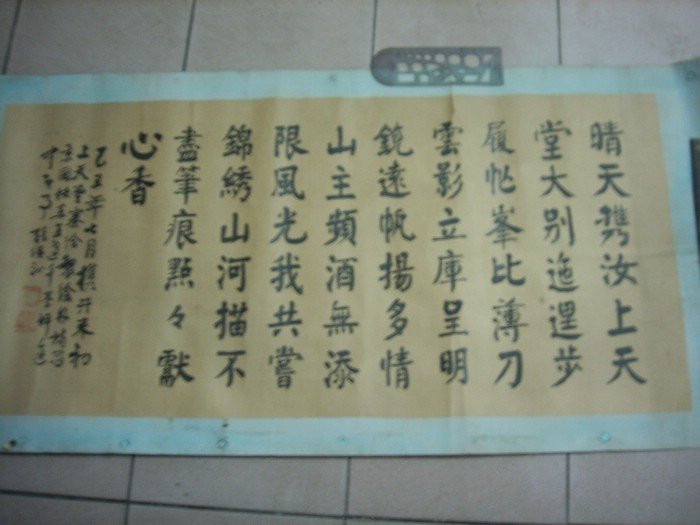 晴天携汝上天
堂大别迤逞步
履怯峯比薄刀
雲影立庫呈明
鏡遠帆揚多情
山主頻酒無添
限風光我共嘗
錦綉山河描不
盡筆痕點々獻
心香
乙丑年七月
上天堂寨